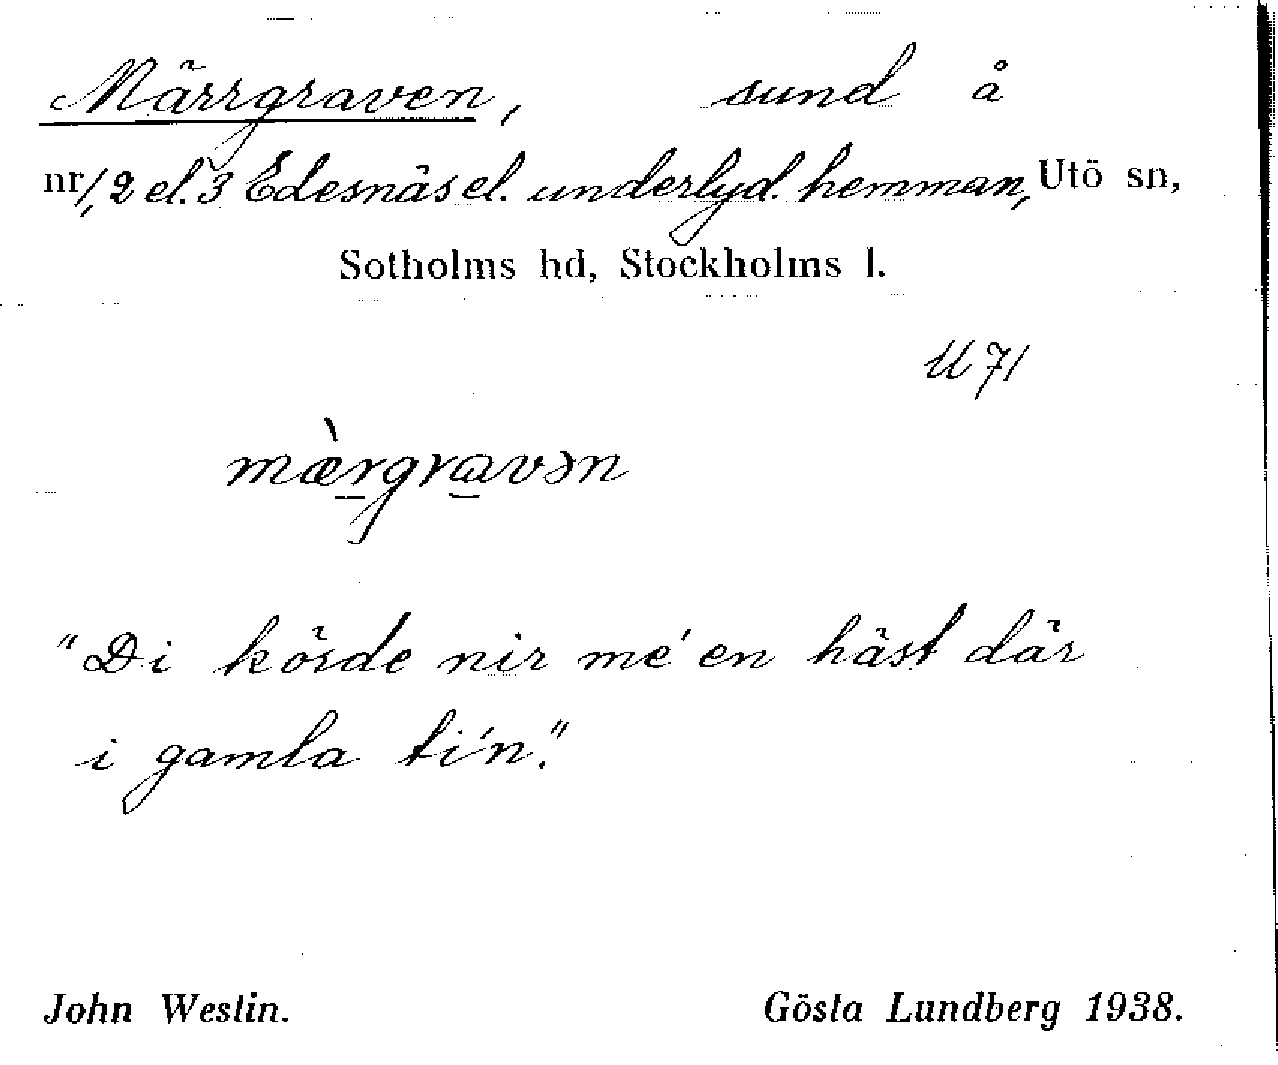 Märrgraven, sund å
nr 1, 2 el. 3 Edesnäs el. underlyd. hemman, Utö sn,
Sotholms hd, Stockholms l.
U 71
mæ̀rgravən
"Di körde nir me' en häst där
i gamla ti'n."
John Westin. Gösta Lundberg 1938.